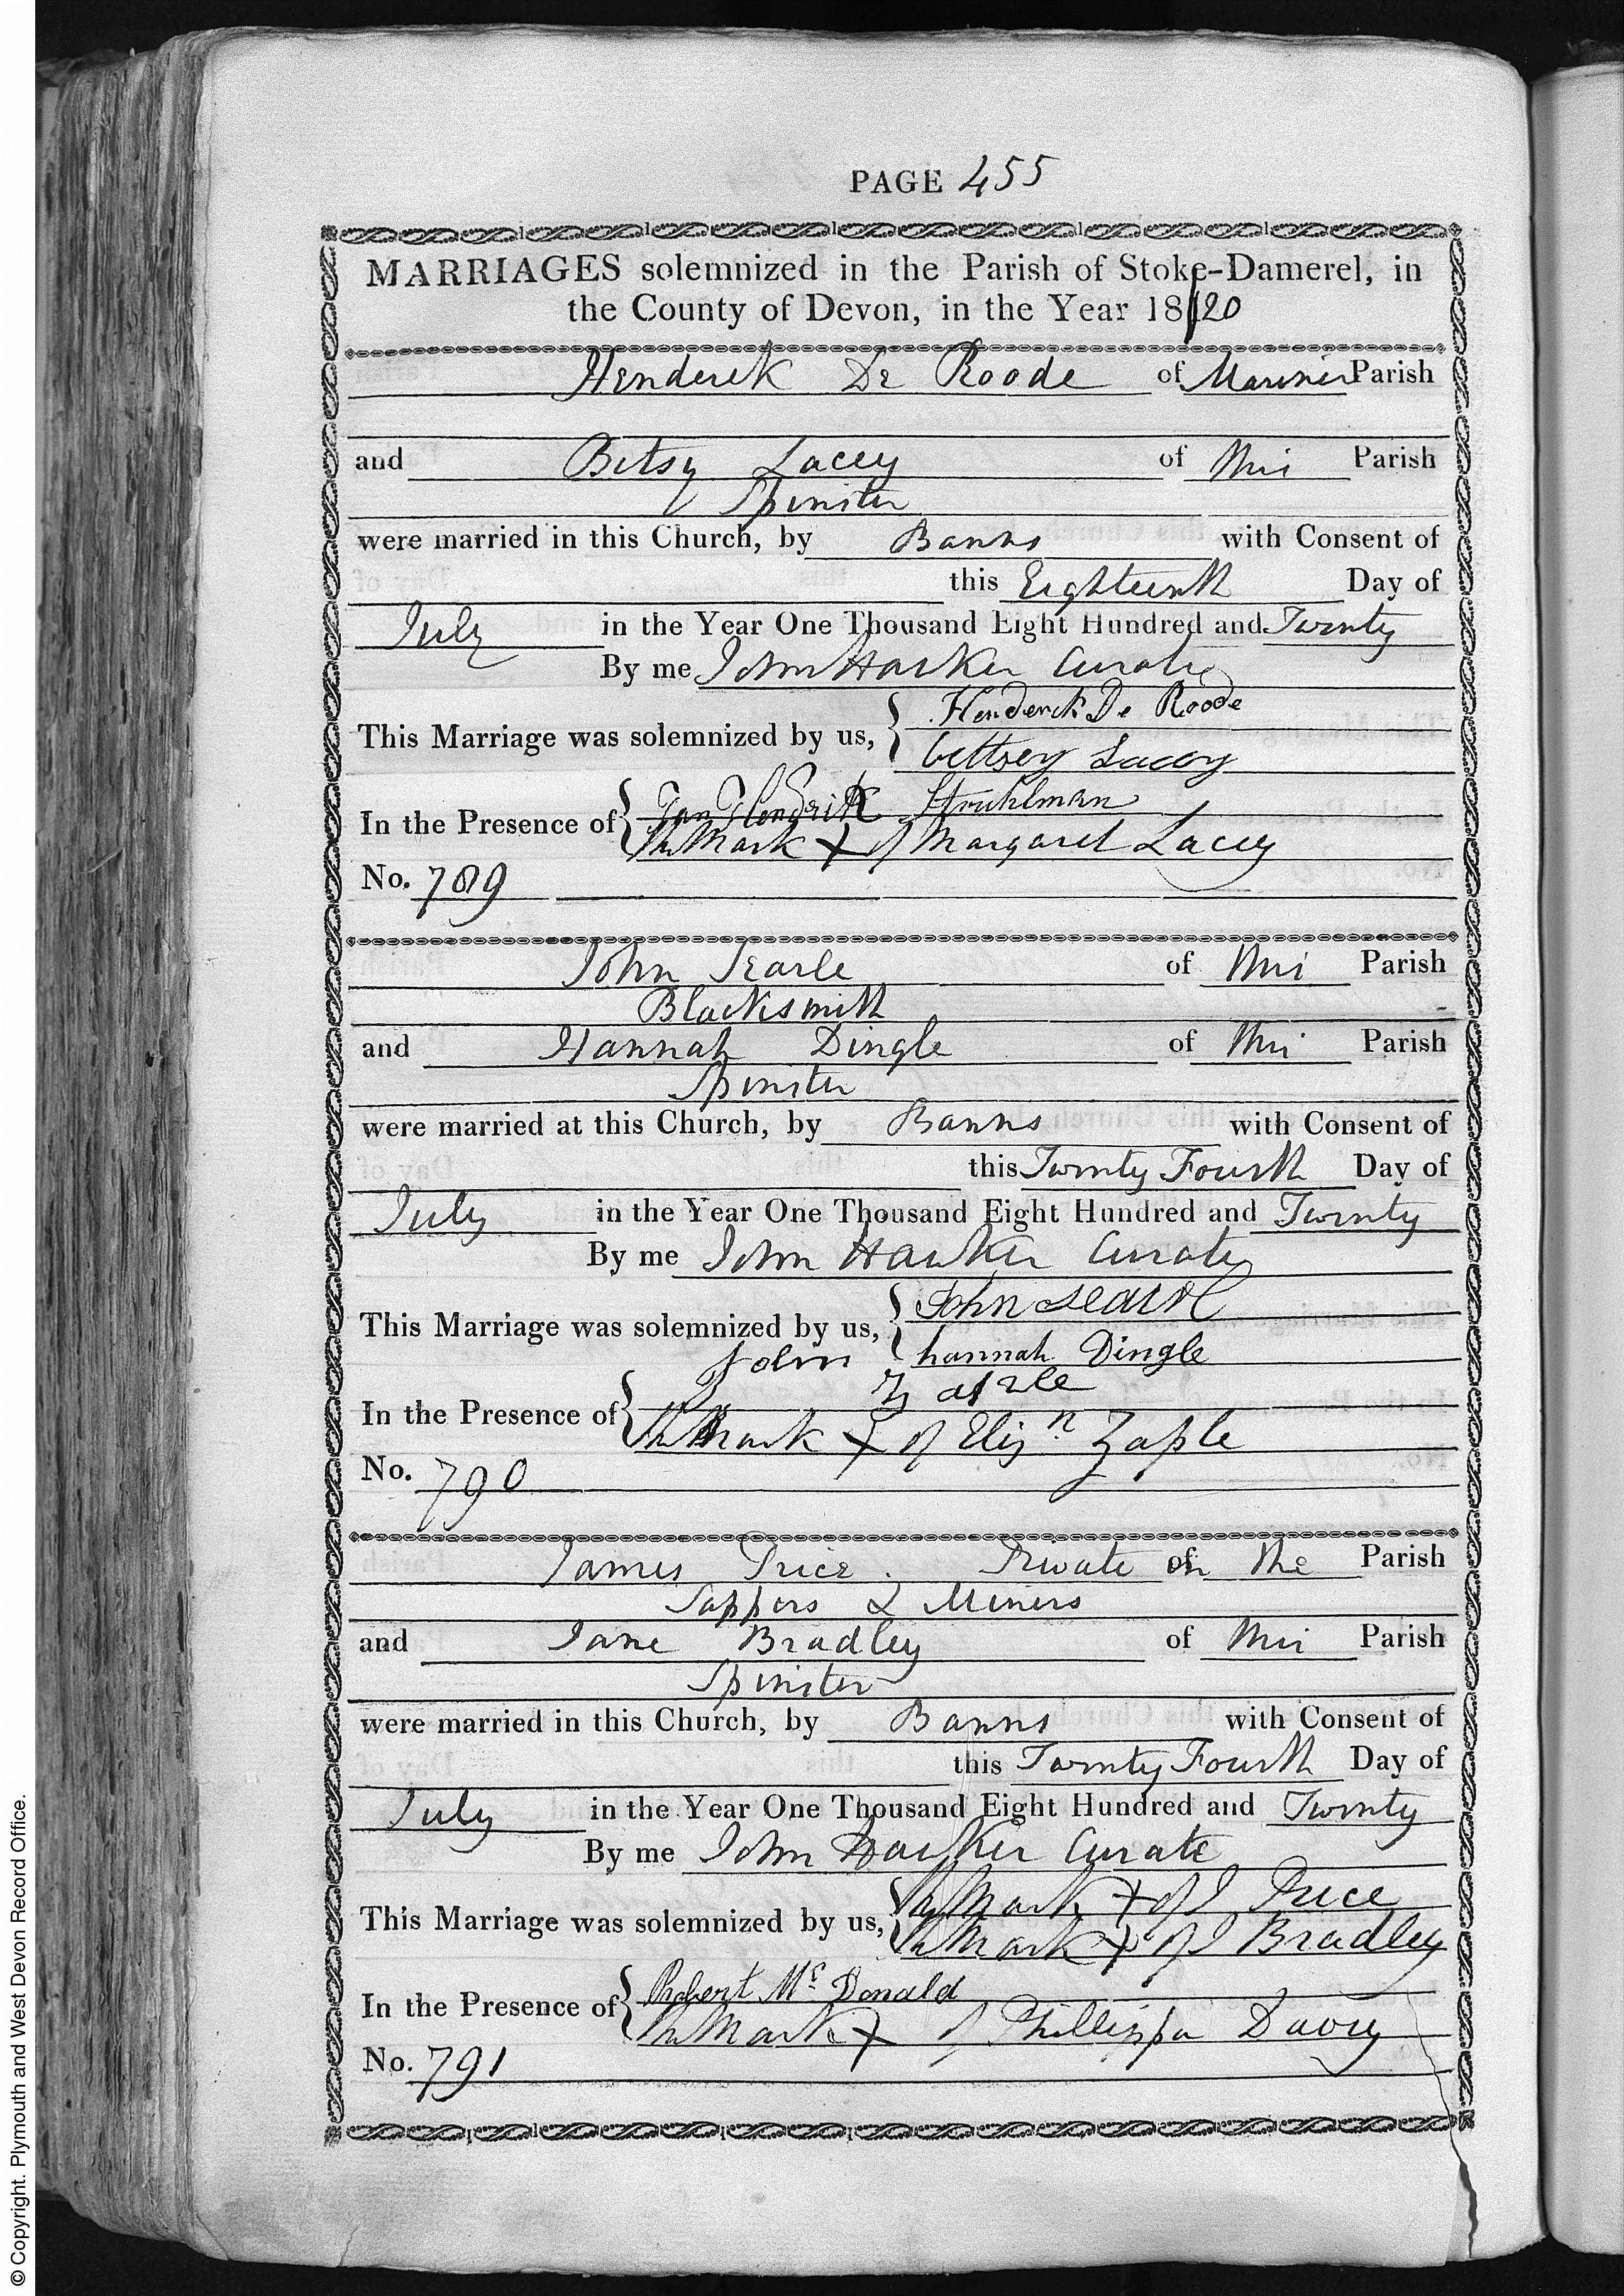 PAGE 455
MARRIAGES solemnized in the Parish of Stoke-Damerel, in
the County of Devon, in the Year 1820
Henderek De Roode of Mariner Parish
and Betsy Lacey of this Parish
Spinster
were married in this Church, by Banns with Consent of
this Eighteenth Day of
July in the Year One Thousand Eight Hundred and Twenty
By me John Hawker Curate
This Marriage was solemnized by us, Henderek De Roode
bettsey Lacey
In the Presence of Jan Hendrik
The Mark X of Margaret Lacey
No. 789
John Searle of this Parish
Blacksmith
and Hannah Dingle of this Parish
Spinster
were married at this Church, by Banns with Consent of
this Twenty Fourth Day of
July in the Year One Thousand Eight Hundred and Twenty
By me John Hawker Curate
This Marriage was solemnized by us, John Searle
hannah Dingle
In the Presence of John
The Mark X of Eliz Zaple
No. 790
James Price Private of the Parish
Sappers & Miners
and Jane Bradley of this Parish
Spinster
were married in this Church, by Banns with Consent of
this Twenty Fourth Day of
July in the Year One Thousand Eight Hundred and Twenty
By me John Hawker Curate
This Marriage was solemnized by us, The Mark X of J Price
The Mark X of J Bradley
In the Presence of Robert Mc Donald
The Mark X of Phillippa Davey
No. 791
© Copyright. Plymouth and West Devon Record Office.